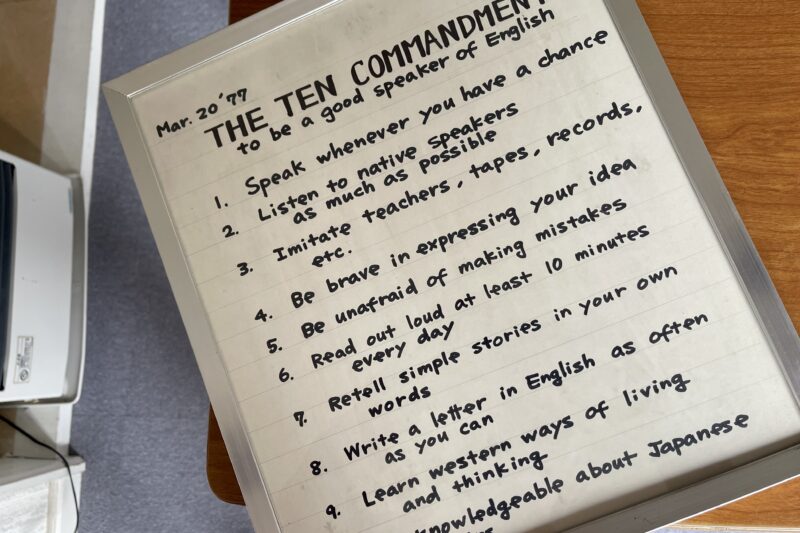 Mar. 20 '77
THE TEN COMMANDMENT
to be a good speaker of English
1. Speak whenever you have a chance
2. Listen to native speakers
as much as possible
3. Imitate teachers, tapes, records,
etc.
4. Be brave in expressing your idea
5. Be unafraid of making mistakes
6. Read out loud at least 10 minutes
every day
7. Retell simple stories in your own
words
8. Write a letter in English as often
as you can
9. Learn western ways of living
and thinking
knowledgeable about Japanese